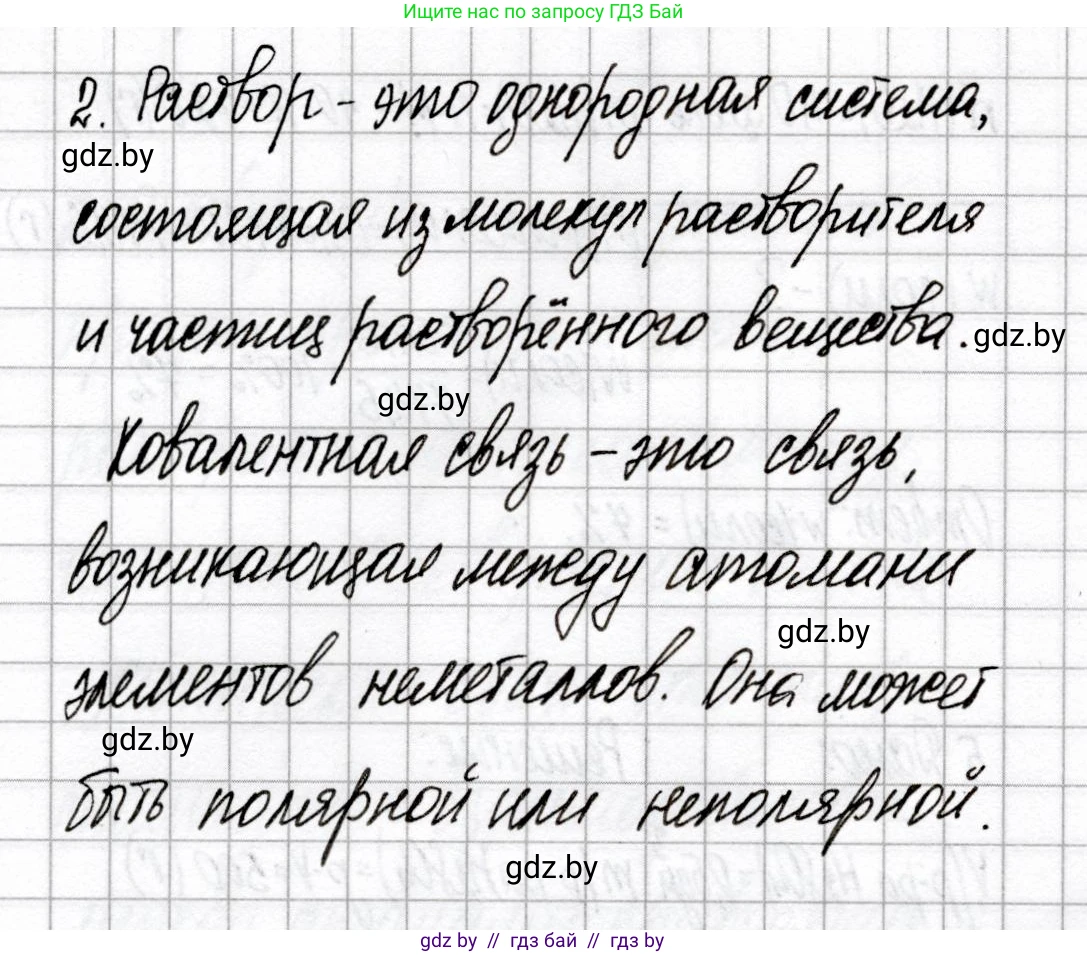 Ищите нас по запросу ГДЗ Бай
2. Раствор - это однородная система,
gdz.by
состоящая из молекул растворителя
и частиц растворённого вещества.
gdz.by
gdz.by
Ковалентная связь – это связь,
возникающая между атомами
gdz.by
элементов неметаллов. Она может
gdz.by
быть полярной или неполярной.
gdz.by
gdz by // гдз бай // гдз by